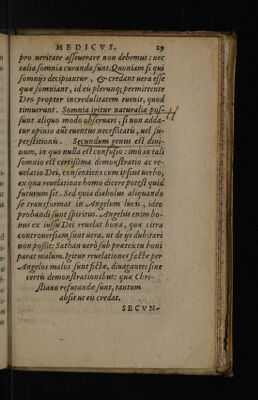 MEDICVS. 29
pro ueritate asseuerare non debemus: nec
talia somnia curanda sunt. Quoniam si qui
somnijs decipiuntur, & credant uera esse
quæ somniant, id eis plerunq; permittente
Deo propter incredulitatem euenit, quod
timuerunt. Somnia igitur naturalia pos-
sunt aliquo modo obseruari, si non adda-
tur opinio aut euentus necessitatis, uel su-
perstitionis. Secundum genus est diui-
num, in quo nulla est confusio: imò in tali
somnio est certissima demonstratio ac re-
uelatio Dei, consentiens cum ipsius uerbo,
ex qua reuelatione homo dicere potest quid
futurum sit. Sed quia diabolus aliquando
se transformat in Angelum lucis, ideo
probandi sunt spiritus. Angelus enim bo-
nus ex iussu Dei reuelat bona, quæ citra
controuersiam sunt uera, ut de ijs dubitari
non possit: Sathan uerò sub prætextu boni
parat malum. Igitur reuelationes factæ per
Angelos malos sunt fictæ, diuagantes sine
certis demonstrationibus: quæ Chri-
stiano refutandæ sunt, tantum
absit ut eis credat.
SECVN-